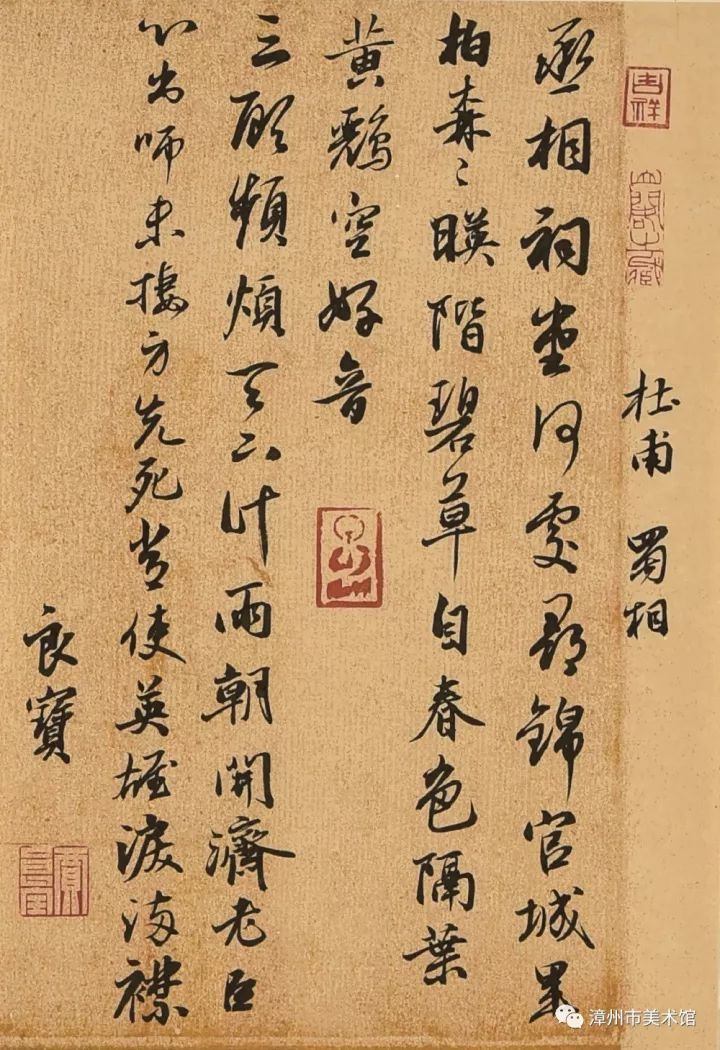 杜甫 蜀相
丞相祠堂何處尋錦官城
柏森〻暎階碧草自春色隔葉
黄鸝空好音
三顧頻煩天下計兩朝開濟老臣
心出師未捷方先死長使英雄淚滿襟
良寶
吉祥
漳州市美术馆